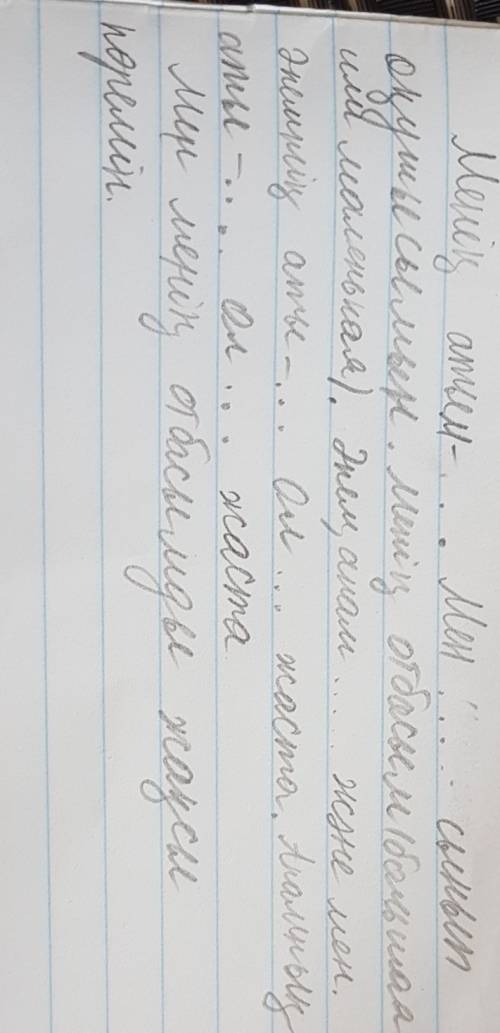 Менің атым-... Мен "...." сынып
оқушысымын. Менің отбасым (большая
или маленькая). Әкем, анам.... және мен.
Әкемнің аты-... Ол ... жаста. Анамның
аты-.... Ол ... жаста
Мен менің отбасымды жақсы
көремін.